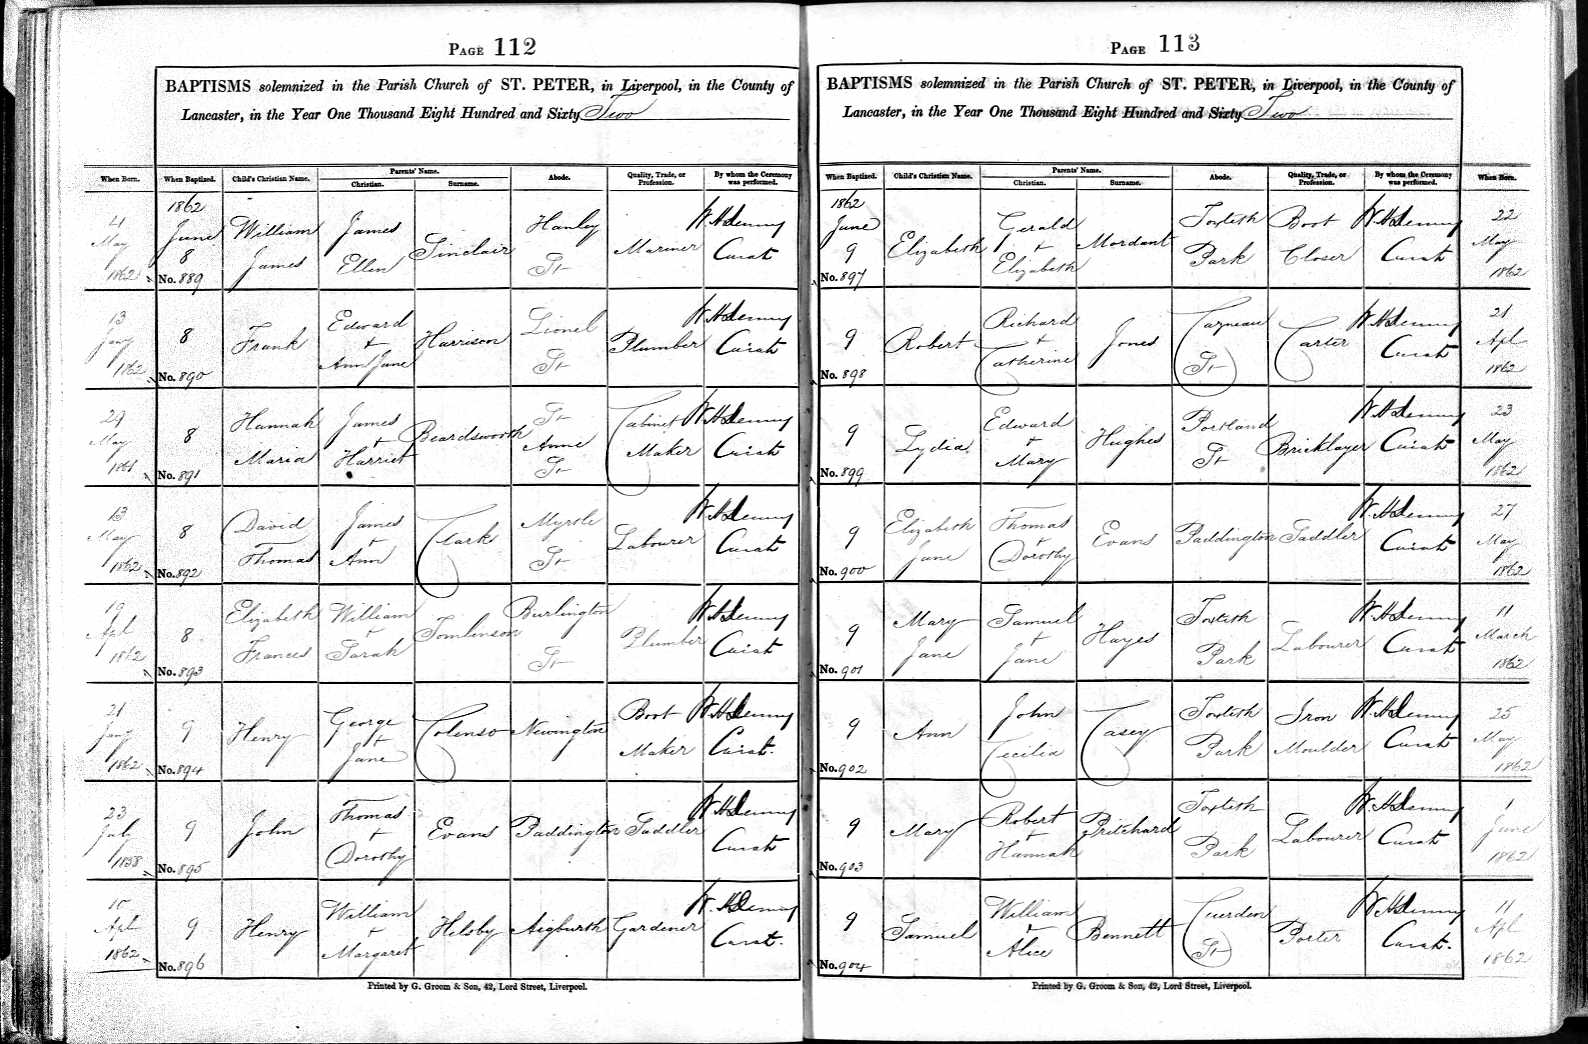 PAGE 112
BAPTISMS solemnized in the Parish Church of ST. PETER, in Liverpool, in the County of
Lancaster, in the Year One Thousand Eight Hundred and Sixty Two
When Born. When Baptized. Child's Christian Name. Parents' Name. Christian. Surname. Abode. Quality, Trade, or Profession. By whom the Ceremony was performed.
4 May 1862 1862 June 8 No. 889 William James James Ellen Sinclair Hanley St Mariner W H Denny Curate
13 1862 8 No. 890 Frank Edward + Ann Jane Harrison Lionel St Plumber W H Denny Curate
29 May 1861 8 No. 891 Hannah Maria James + Harriet Beardsworth St Anne St Cabinet Maker W H Denny Curate
13 May 1862 8 No. 892 David Thomas James + Ann Clark Myrtle St Labourer W H Denny Curate
19 Apl 1862 8 No. 893 Elizabeth Frances William + Sarah Tomlinson Burlington St Plumber W H Denny Curate
21 1862 9 No. 894 Henry George + Jane Colenso Newington Boot Maker W H Denny Curate.
23 July 1858 9 No. 895 John Thomas + Dorothy Evans Paddington Saddler W H Denny Curate
10 Apl 1862 9 No. 896 Henry William + Margaret Helsby Aigburth Gardener W. H Denny Curate.
Printed by G. Groom & Son, 42, Lord Street, Liverpool.
PAGE 113
BAPTISMS solemnized in the Parish Church of ST. PETER, in Liverpool, in the County of
Lancaster, in the Year One Thousand Eight Hundred and Sixty Two
When Baptized. Child's Christian Name. Parents' Name. Christian. Surname. Abode. Quality, Trade, or Profession. By whom the Ceremony was performed. When Born.
1862 June 9 No. 897 Elizabeth Gerald + Elizabeth Mordant Toxteth Park Boot Closer W H Denny Curate 22 May 1862
9 No. 898 Robert Richard + Catherine Jones St Carter W H Denny Curate 21 Apl 1862
9 No. 899 Lydia Edward + Mary Hughes Portland St Bricklayer W H Denny Curate 23 May 1862
9 No. 900 Elizabeth Jane Thomas + Dorothy Evans Paddington Saddler W H Denny Curate 27 May 1862
9 No. 901 Mary Jane Samuel + Jane Hayes Toxteth Park Labourer W H Denny Curate 11 March 1862
9 No. 902 Ann John Cecilia Casey Toxteth Park Iron Moulder W H Denny Curate 25 May 1862
9 No. 903 Mary Robert + Hannah Pritchard Toxteth Park Labourer W H Denny Curate 1 June 1862
9 No. 904 Samuel William + Alice Bennett Cuerden St Porter W H Denny Curate. 11 Apl 1862
Printed by G. Groom & Son, 42, Lord Street, Liverpool.